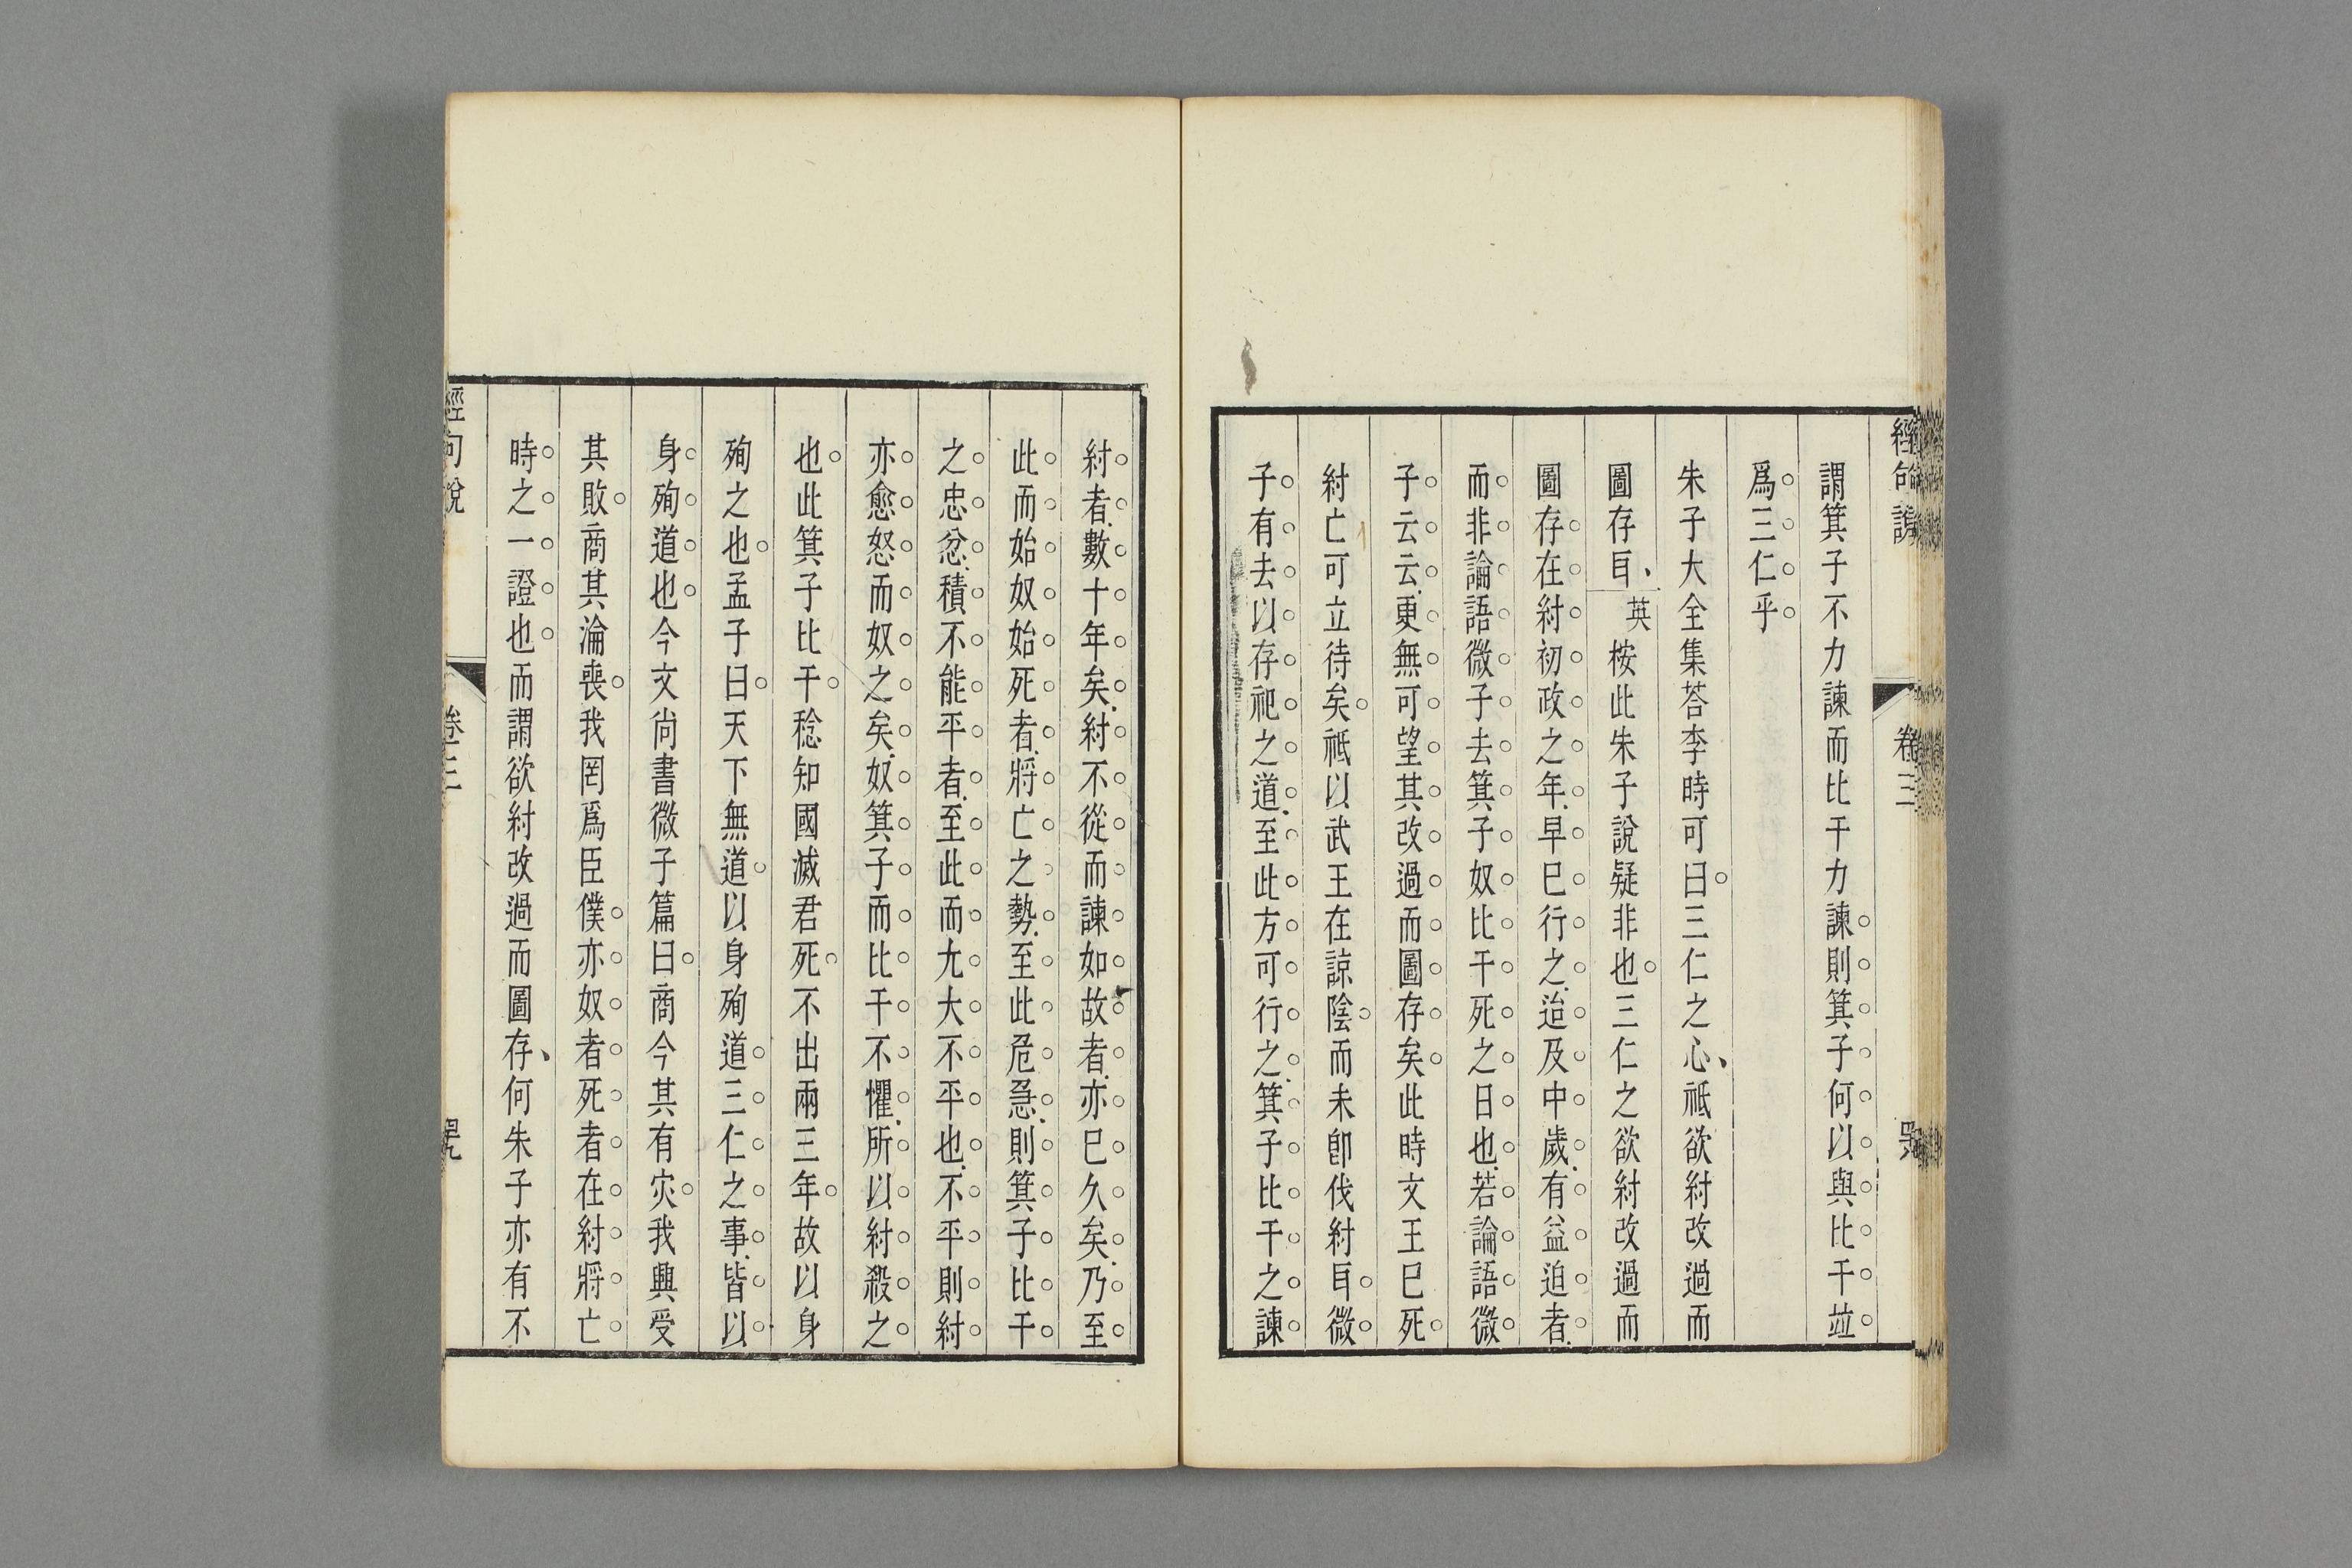 經句說
卷三
謂箕子不力諫而比干力諫則箕子何以與比干竝
爲三仁乎
朱子大全集荅李時可曰三仁之心祗欲紂改過而
圖存耳英桉此朱子說疑非也三仁之欲紂改過而
圖存在紂初政之年早已行之迨及中歲有益迫者
而非論語微子去箕子奴比干死之日也若論語微
子云云更無可望其改過而圖存矣此時文王已死
紂亡可立待矣祗以武王在諒陰而未卽伐紂耳微
子有去以存祀之道至此方可行之箕子比干之諫
紂者數十年矣紂不從而諫如故者亦已久矣乃至
此而始奴始死者將亡之勢至此危急則箕子比干
之忠忿積不能平者至此而尢大不平也不平則紂
亦愈怒而奴之矣奴箕子而比干不懼所以紂殺之
也此箕子比干稔知國滅君死不出兩三年故以身
殉之也孟子曰天下無道以身殉道三仁之事皆以
身殉道也今文尚書微子篇曰商今其有灾我興受
其敗商其淪喪我罔爲臣僕亦奴者死者在紂將亡
時之一證也而謂欲紂改過而圖存何朱子亦有不
經句說
卷三